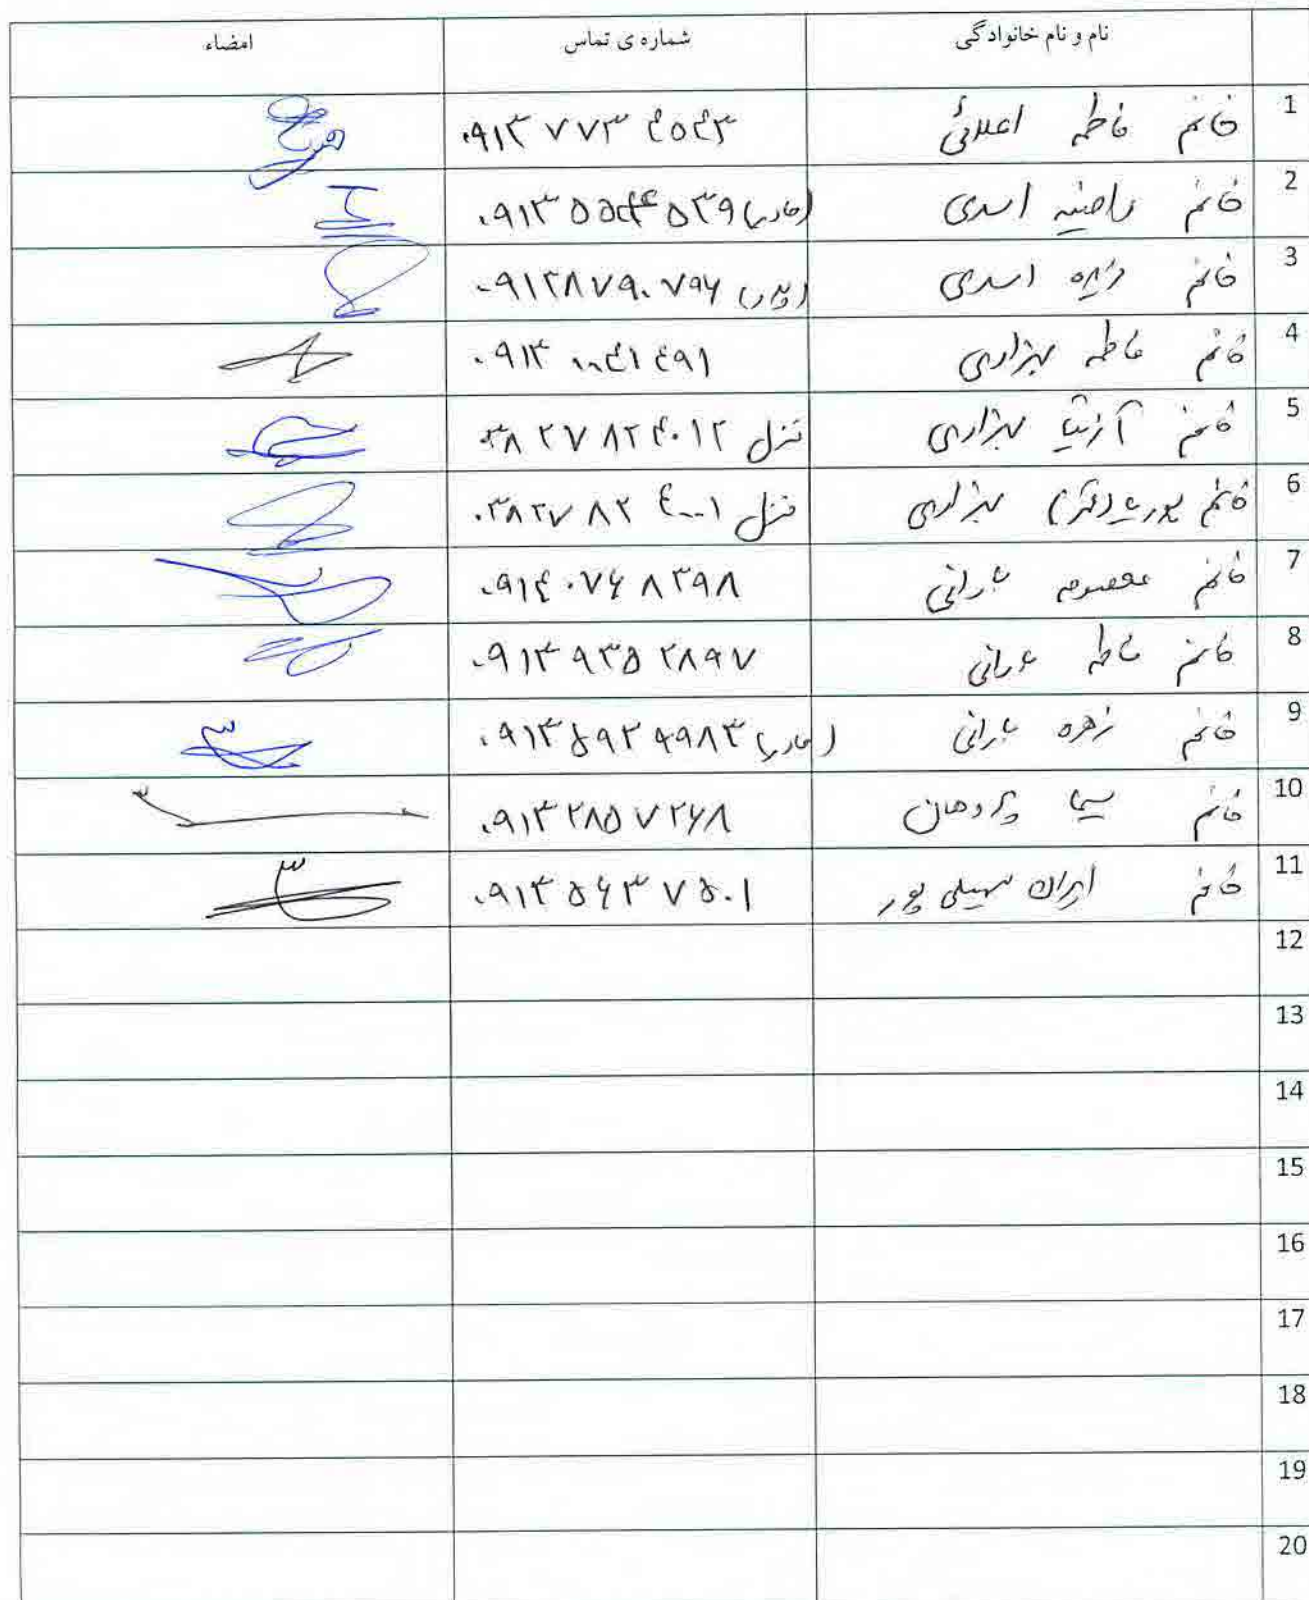 نام و نام خانوادگی شماره ی تماس امضاء
1 خانم فاطمه اعلائی ۰۹۱۳ ۷۷۳ ۴۵۴۳
2 خانم راضیه اسدی (مادر)
3 خانم اسدی ۰۹۱۳۸۷۹۰۷۹۶ (پدر)
4 خانم فاطمه بهزادی ۰۹۱۳ ۰۰۴۱ ۴۹۱
5 خانم آرنیتا بهزادی منزل ۰۳۸ ۲۷ ۸۲ ۴۰۱۲
6 خانم بهزادی منزل ۰۳۸۲۷ ۸۲ ۴۰۰۱
7 خانم معصومه بارانی ۰۹۱۴۰۷۶ ۸۳۹۸
8 خانم فاطمه بارانی ۰۹۱۳ ۹۳۵ ۲۸۹۷
9 خانم زهره بارانی (مادر)
10 خانم سیما ۰۹۱۳ ۲۸۵ ۷۲۶۸
11 خانم ایران سهیلی پور ۰۹۱۳ ۵۶۳ ۷۵۰۱
12
13
14
15
16
17
18
19
20